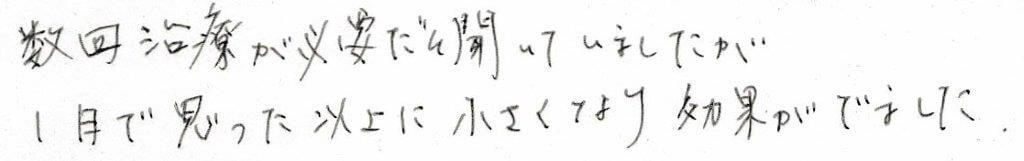 数回治療が必要だと聞いていましたが
1回で思った以上に小さくなり効果がでました.